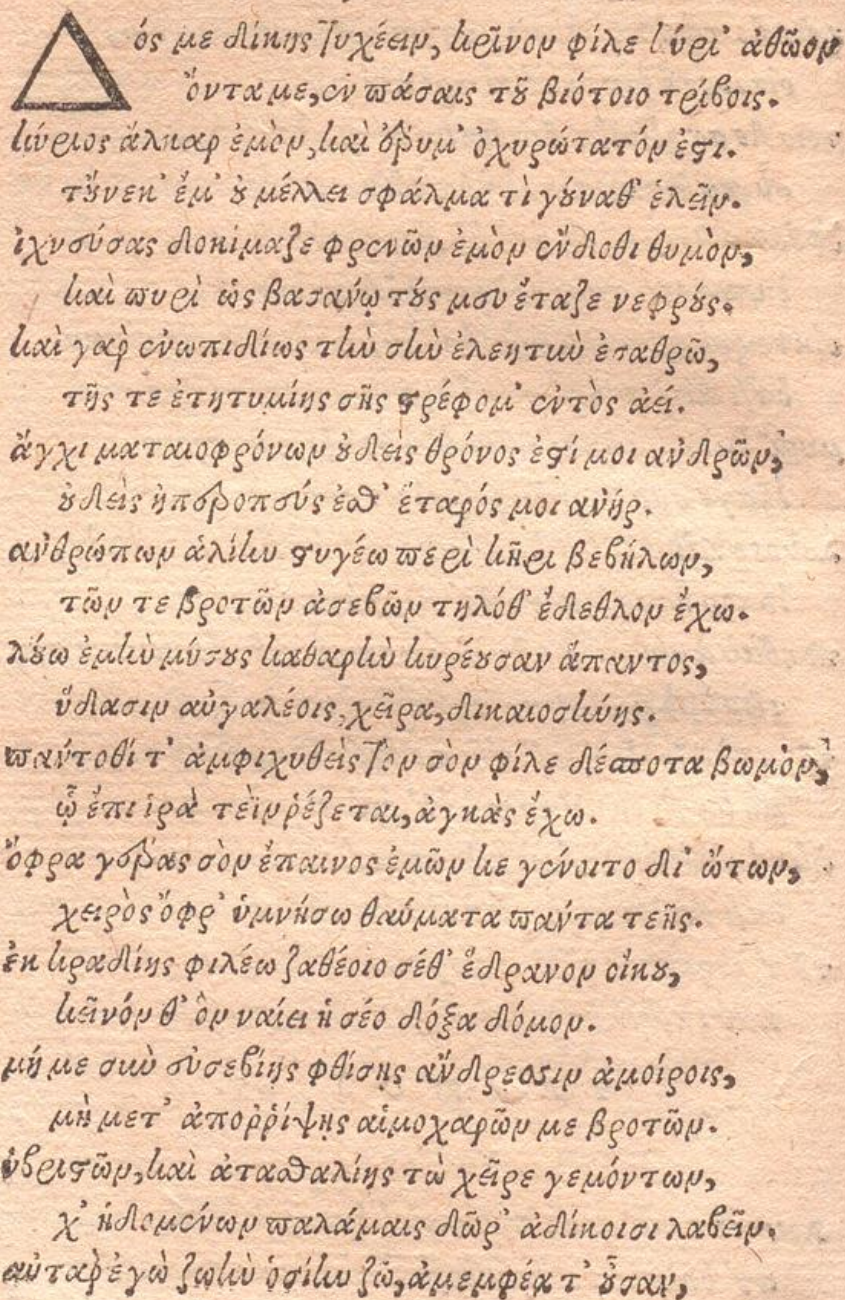 Δός με δίκης τυχέειν, κρῖνον φίλε κύρι' ἀθῶον
ὄντα με, ἐν πάσαις τοῦ βιότοιο τρίβοις.
κύριος ἄλκαρ ἐμὸν, καὶ ἔρυμ' ὀχυρώτατόν ἐστι.
τοὔνεκ' ἔμ' οὐ μέλλει σφάλμα τὶ γούναθ' ἑλεῖν.
ἰχνεύσας δοκίμαζε φρενῶν ἐμὸν ἔνδοθι θυμὸν,
καὶ πυρὶ ὡς βασάνῳ τούς μευ ἔταζε νεφρούς.
καὶ γὰρ ἐνωπιδίως τὴν σὴν ἐλεητὺν ἐσαθρῶ,
τῆς τε ἐτητυμίης σῆς στρέφομ' ἐντὸς ἀεί.
ἄγχι ματαιοφρόνων οὐδεὶς θρόνος ἐστί μοι ἀνδρῶν,
οὐδεὶς ἠπεροπεύς ἐσθ' ἕταρός μοι ἀνήρ.
ἀνθρώπων ἁλίην στυγέω περὶ κῆρι βεβήλων,
τῶν τε βροτῶν ἀσεβῶν τηλόθ' ἔδεθλον ἔχω.
λούω ἐμὴν μύσους καθαρὴν κυρέουσαν ἅπαντος,
ὕδασιν αὐγαλέοις, χεῖρα, δικαιοσύνης.
πάντοθί τ' ἀμφιχυθεὶς τὸν σὸν φίλε δέσποτα βωμὸν,
ᾧ ἔπι ἱρὰ τεῒν ῥέζεται, ἀγκὰς ἔχω.
ὄφρα γεραὸς σὸν ἔπαινος ἐμῶν κε γένοιτο δι' ὤτων,
χειρὸς ὄφρ' ὑμνήσω θαύματα πάντα τεῆς.
ἐκ κραδίης φιλέω ζαθέοιο σέθ' ἕδρανον οἴκου,
κεῖνόν θ' ὃν ναίει ἡ σέο δόξα δόμον.
μή με σὺν εὐσεβίης φθίσῃς ἄνδρεσσιν ἀμοίροις,
μὴ μετ' ἀποῤῥίψῃς αἱμοχαρῶν με βροτῶν.
ὑβριστῶν, καὶ ἀτασθαλίης τὼ χεῖρε γεμόντων,
χ' ἡδομένων παλάμαις δῶρ' ἀδίκοισι λαβεῖν.
αὐτὰρ ἐγὼ ζωὴν ὁσίην ζῶ, ἀμεμφέα τ' οὖσαν,